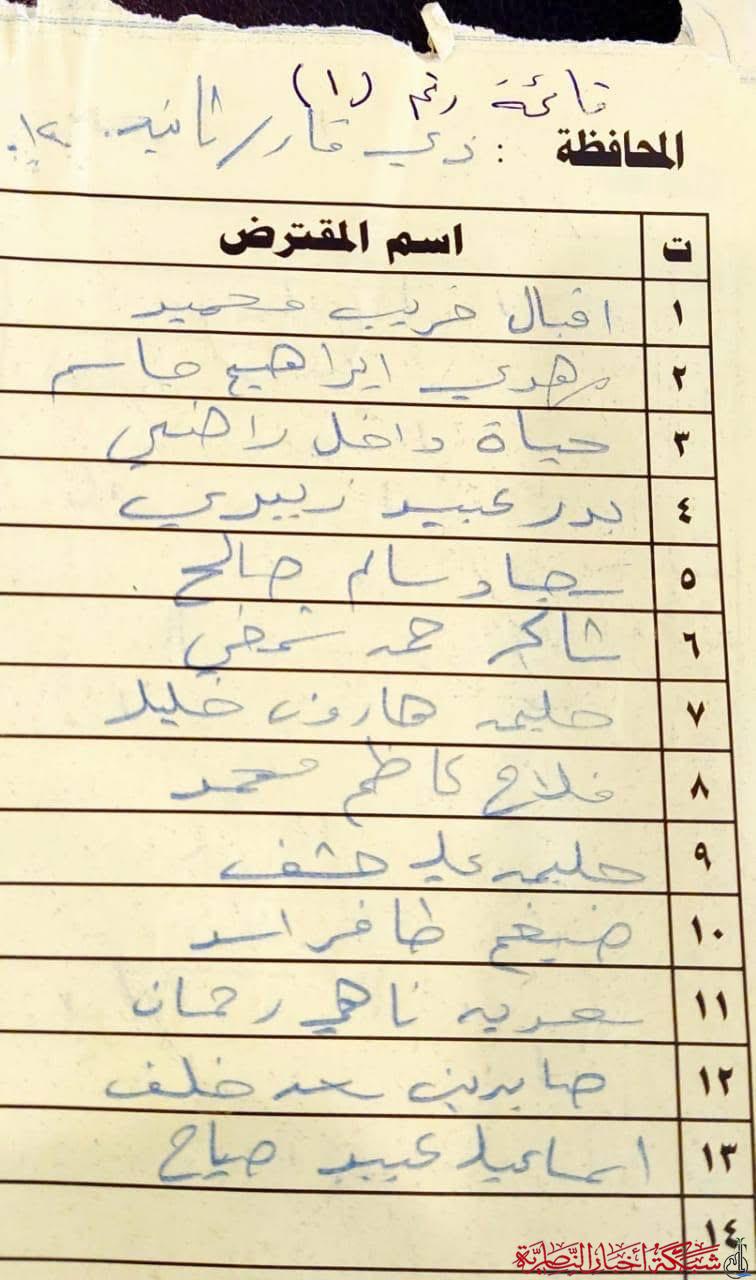 قائمة رقم (١)
المحافظة : ذي قار / ثانيه
ت اسم المقترض
١ اقبال غريب محميد
٢ مهدي ابراهيم جاسم
٣ حياة داخل راضي
٤ بدر عبيد زبيدي
٥ سجاد سالم صالح
٦ شاكر حمد شمخي
٧ حليمه هارون خليل
٨ فلاح كاظم محمد
٩ حليمه علي
١٠ ضيغم ظافر اسد
١١ سعديه ناهي رحمان
١٢ صابرين سعد خلف
١٣ اسماعيل عبيد صياح
١٤
شبكة أخبار الناصرية